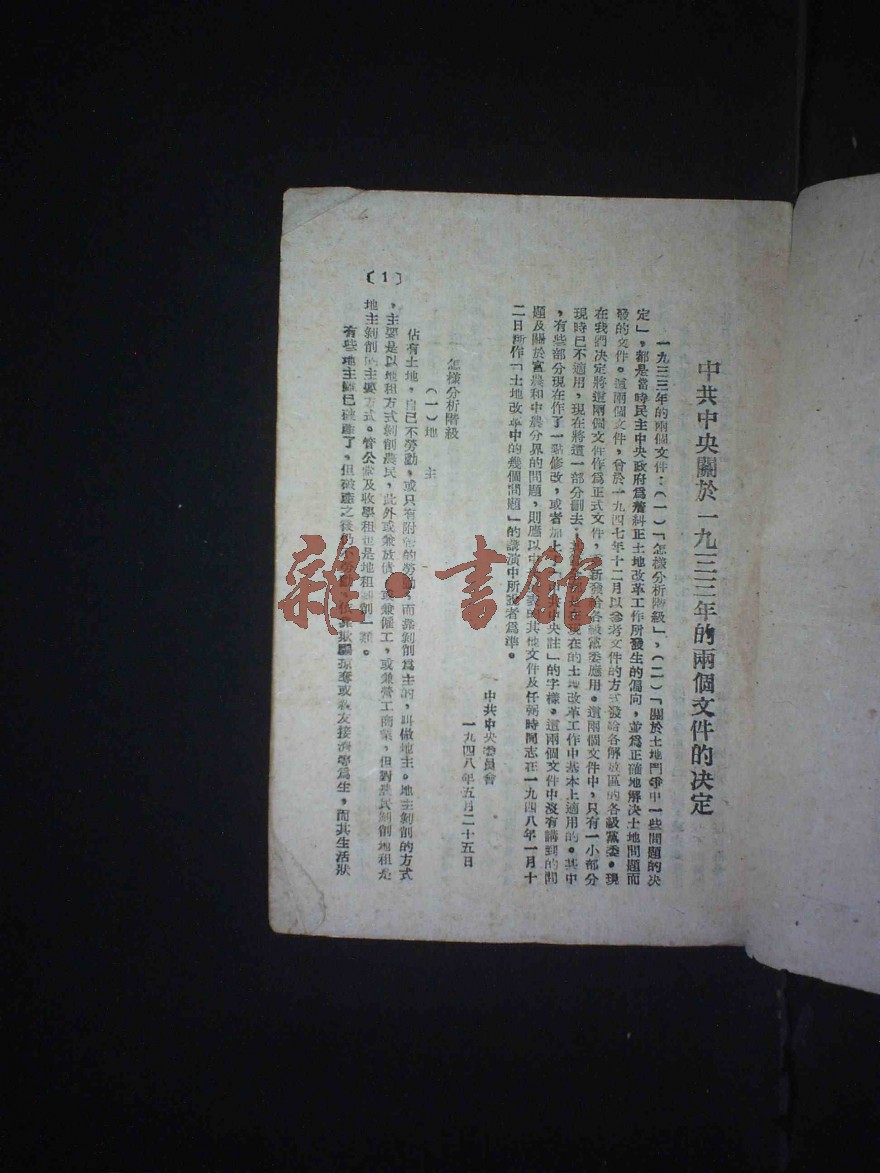 中共中央關於一九三三年的兩個文件的决定
一九三三年的兩個文件：（一）「怎樣分析階級」，（二）「關於土地鬥爭中一些問題的决
定」，都是當時民主中央政府爲着糾正土地改革工作所發生的偏向，並爲正確地解决土地問題而
發的文件。這兩個文件，會於一九四七年十二月以參考文件的方式發給各解放區的各級黨委。現
在我們决定將這兩個文件作爲正式文件，新發給各級黨委應用。這兩個文件中，只有一小部分
現時已不適用，現在將這一部分刪去，在現在的土地改革工作中基本上適用的。其中
，有些部分現在作了一點修改，或者加上中共中央註」的字樣。這兩個文件中沒有講到的問
題及關於富農和中農分界的問題，則應以中的其他文件及任弼時同志在一九四八年一月十
二日所作「土地改革中的幾個問題」的講演中所說者爲準。
中共中央委員會
一九四八年五月二十五日
怎樣分析階級
（一）地　主
佔有土地，自己不勞動，或只有附帶的勞動，而靠剝削爲主的，叫做地主。地主剝削的方式
，主要是以地租方式剝削農民，此外或兼放債，或兼僱工，或兼營工商業，但對農民剝削地租是
地主剝削的主要方式。管公堂及收學租也是地租剝削一類。
有些地主雖已破產了，但破產之後仍不勞動，依靠欺騙掠奪或親友接濟等爲生，而其生活狀
〔1〕
雜·書館